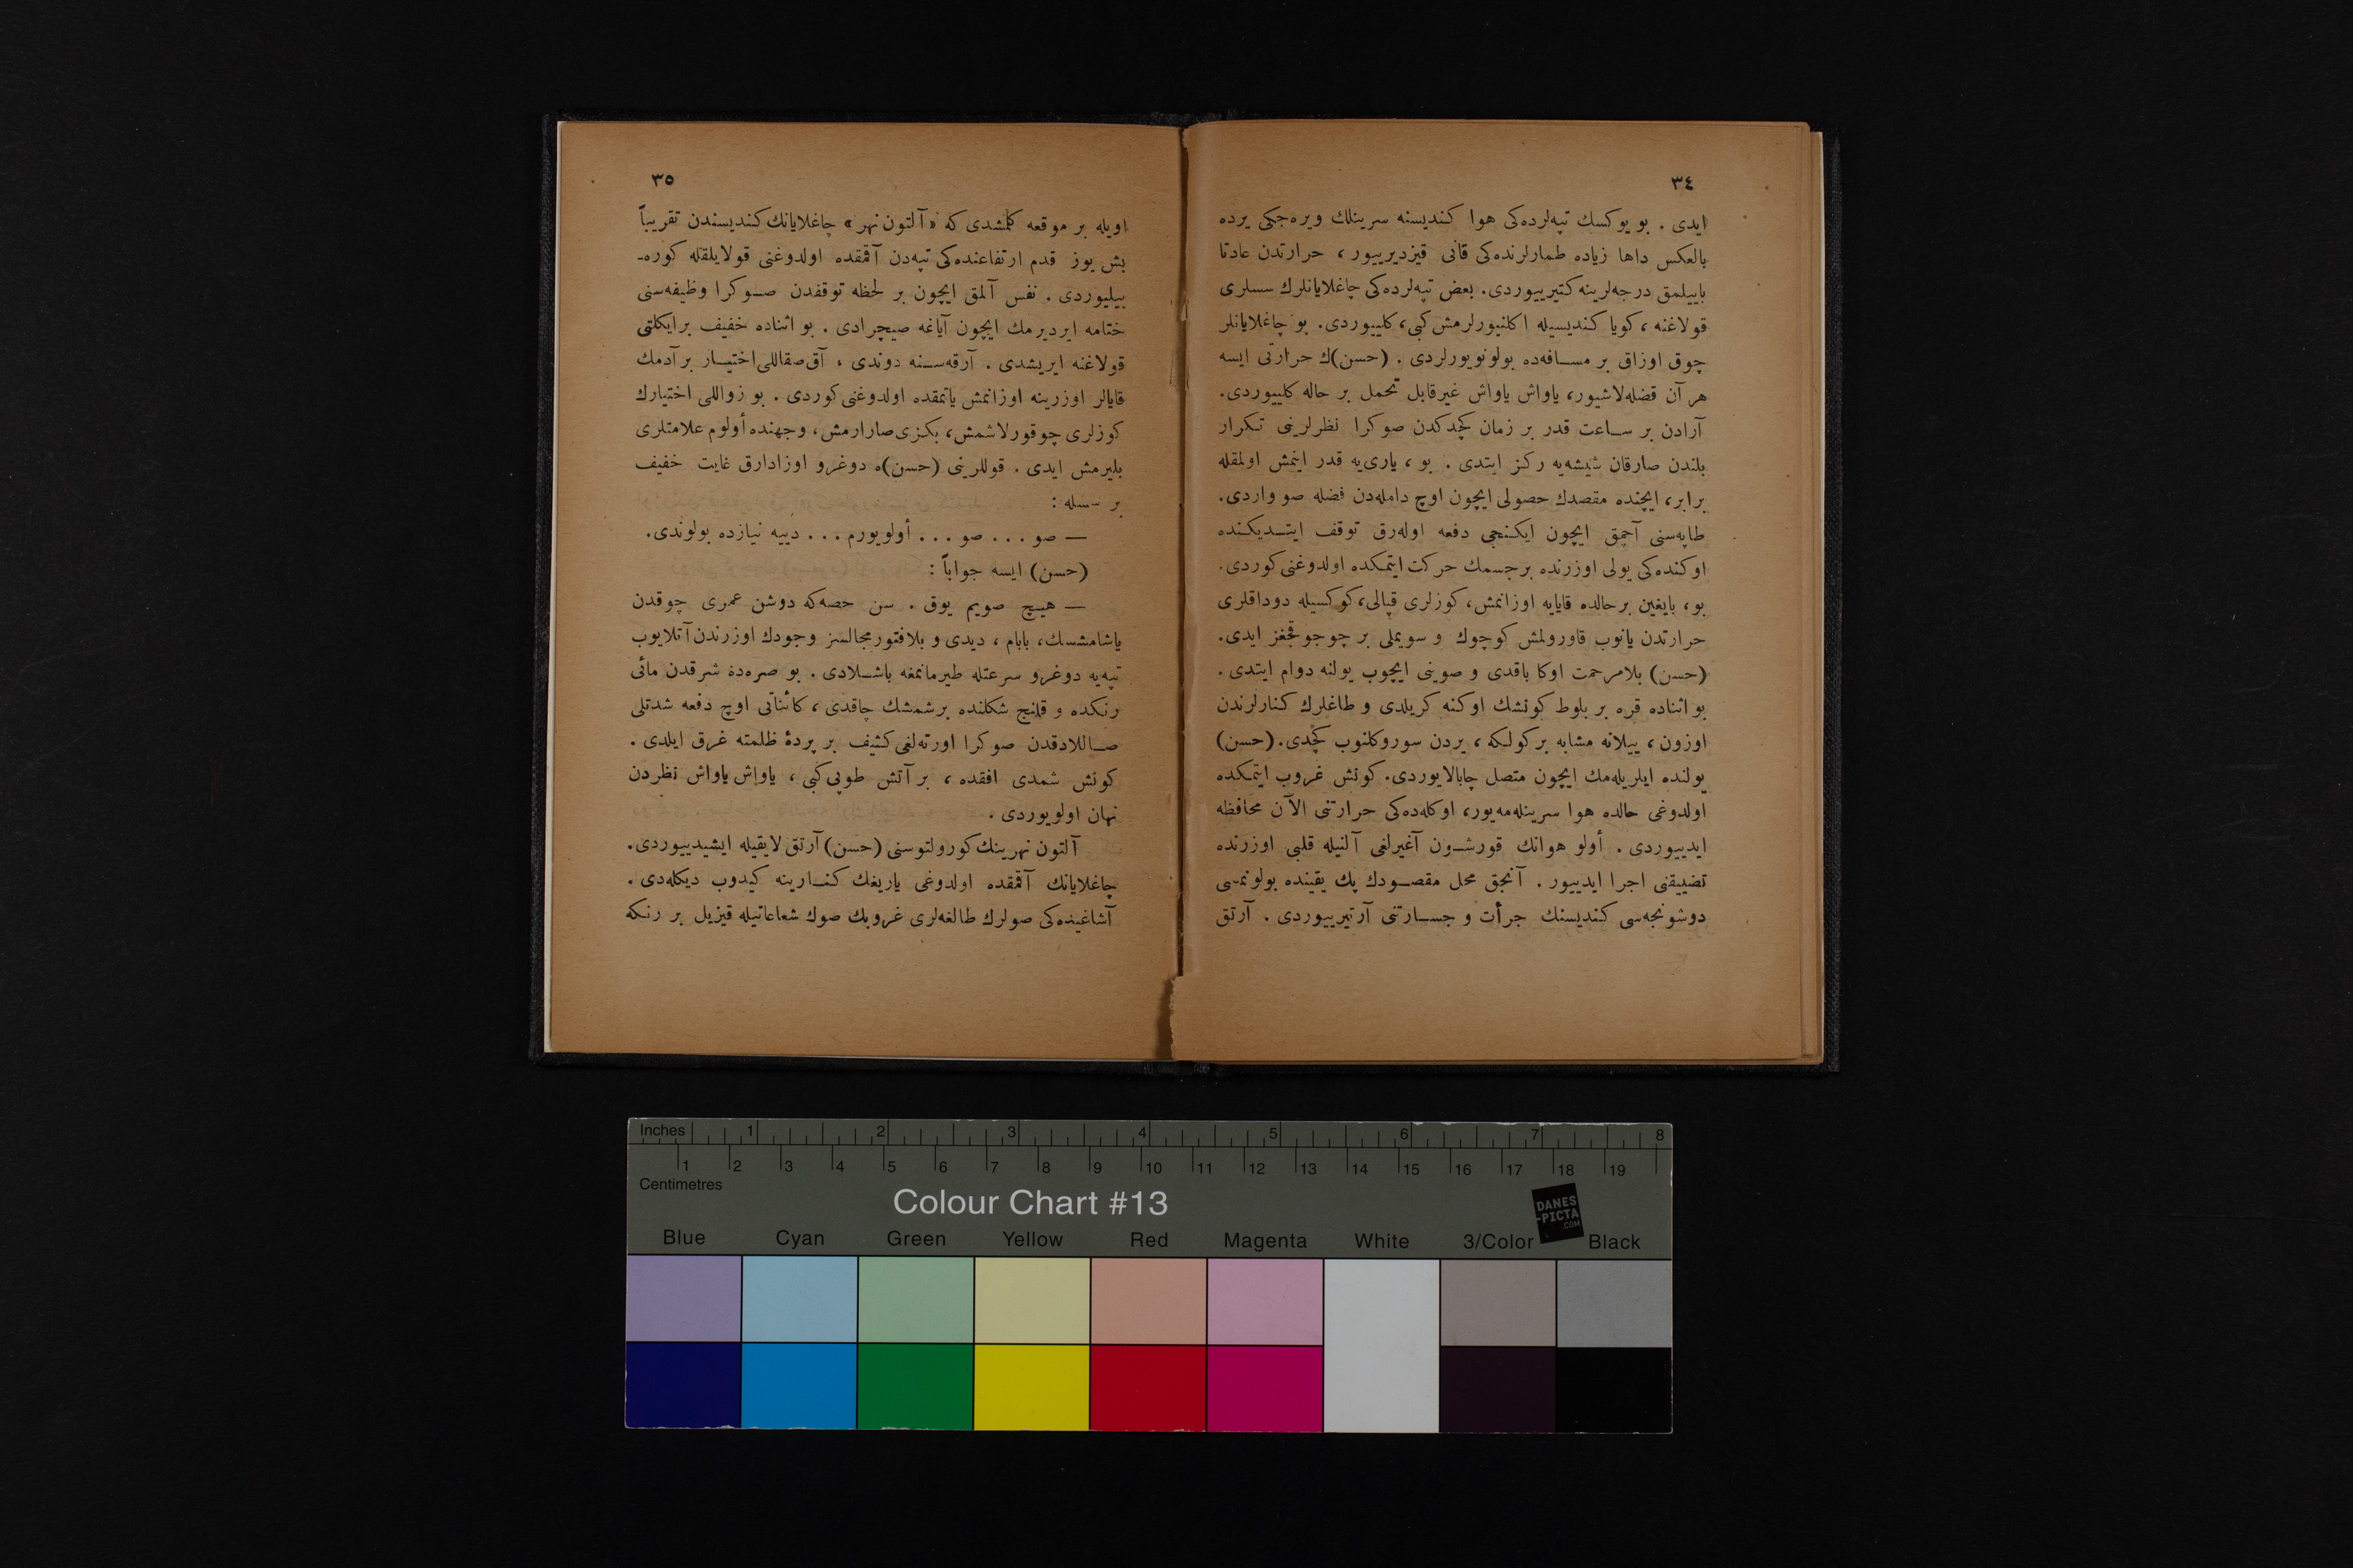 ٣٤
ايدى . بو يوكسك تپه‌لرده‌كى هوا كنديسنه سرينلك ويره‌جكى يرده
بالعكس داها زياده طمارلرنده‌كى قانى قيزديرييور ، حرارتدن عادتا
باييلمق درجه‌لرينه كتيرييوردى. بعض تپه‌لرده‌كى چاغلايانلرك سسلرى
قولاغنه ، كويا كنديسيله اكلنيورلرمش كبى، كلييوردى. بو چاغلايانلر
چوق اوزاق بر مسافه‌ده بولونويورلردى . (حسن)ك حرارتى ايسه
هر آن فضله‌لاشيور، ياواش ياواش غيرقابل تحمل بر حاله كلييوردى.
آرادن بر ساعت قدر بر زمان كچدكدن صوكرا نظرلرينى تكرار
بلندن صارقان شيشه‌يه ركز ايتدى . بو ، يارى‌يه قدر اينمش اولمقله
برابر، ايچنده مقصدك حصولى ايچون اوچ دامله‌دن فضله صو واردى.
طاپه‌سنى آچمق ايچون ايكنجى دفعه اوله‌رق توقف ايتديكنده
اوكنده‌كى يولى اوزرنده برجسمك حركت ايتمكده اولدوغنى كوردى.
بو، بايغين برحالده قايايه اوزانمش، كوزلرى قپالى، كوكسيله دوداقلرى
حرارتدن يانوب قاورولمش كوچوك و سويملى بر چوجوقجغز ايدى.
(حسن) بلامرحمت اوكا باقدى و صوينى ايچوب يولنه دوام ايتدى .
بو اثناده قره بر بلوط كونشك اوكنه كريلدى و طاغلرك كنارلرندن
اوزون ، ييلانه مشابه بر كولكه ، يردن سوروكلنوب كچدى. (حسن)
يولنده ايلريله‌مك ايچون متصل چابالايوردى. كونش غروب ايتمكده
اولدوغى حالده هوا سرينله‌مه‌يور، اوكله‌ده‌كى حرارتنى الآن محافظه
ايدييوردى . أولو هوانك قورشون آغيرلغى آلنيله قلبى اوزرنده
تضييقنى اجرا ايدييور . آنجق محل مقصودك پك يقينده بولونمسى
دوشونجه‌سى كنديسنك جرأت و جسارتنى آرتيرييوردى . آرتق
٣٥
اويله بر موقعه كلمشدى كه «آلتون نهر» چاغلايانك كنديسندن تقريباً
بش يوز قدم ارتفاعنده‌كى تپه‌دن آقمقده اولدوغنى قولايلقله كوره‌-
بيليوردى . نفس آلمق ايچون بر لحظه توقفدن صوكرا وظيفه‌سنى
ختامه ايرديرمك ايچون آياغه صيچرادى . بو اثناده خفيف برايكلتى
قولاغنه ايريشدى . آرقه‌سنه دوندى ، آق‌صقاللى اختيار برآدمك
قايالر اوزرينه اوزانمش ياتمقده اولدوغنى كوردى . بو زواللى اختيارك
كوزلرى چوقورلاشمش، بكزى صارارمش، وجهنده أولوم علامتلرى
بليرمش ايدى . قوللرينى (حسن)ه دوغرو اوزادارق غايت خفيف
بر سسله :
— صو . . . صو . . . أولويورم . . . دييه نيازده بولوندى.
(حسن) ايسه جواباً :
— هيچ صويم يوق . سن حصه‌كه دوشن عمرى چوقدن
ياشامشسك، بابام ، ديدى و بلافتور مجالسز وجودك اوزرندن آتلايوب
تپه‌يه دوغرو سرعتله طيرمانمغه باشلادى . بو صره‌ده شرقدن مائى
رنكده و قلنج شكلنده برشمشك چاقدى ، كائناتى اوچ دفعه شدتلى
صاللادقدن صوكرا اورته‌لغى كثيف بر پردۀ ظلمته غرق ايلدى .
كونش شمدى افقده ، بر آتش طوپى كبى ، ياواش ياواش نظردن
نهان اولويوردى .
آلتون نهرينك كورولتوسنى (حسن) آرتق لايقيله ايشيدييوردى.
چاغلايانك آقمقده اولدوغى ياريغك كنارينه كيدوب ديكله‌دى .
آشاغيده‌كى صولرك طالغه‌لرى غروبك صوك شعاعاتيله قيزيل بر رنكه
Inches 1 2 3 4 5 6 7 8
1 2 3 4 5 6 7 8 9 10 11 12 13 14 15 16 17 18 19
Centimetres
Colour Chart #13
DANES
-PICTA
.COM
Blue Cyan Green Yellow Red Magenta White 3/Color Black